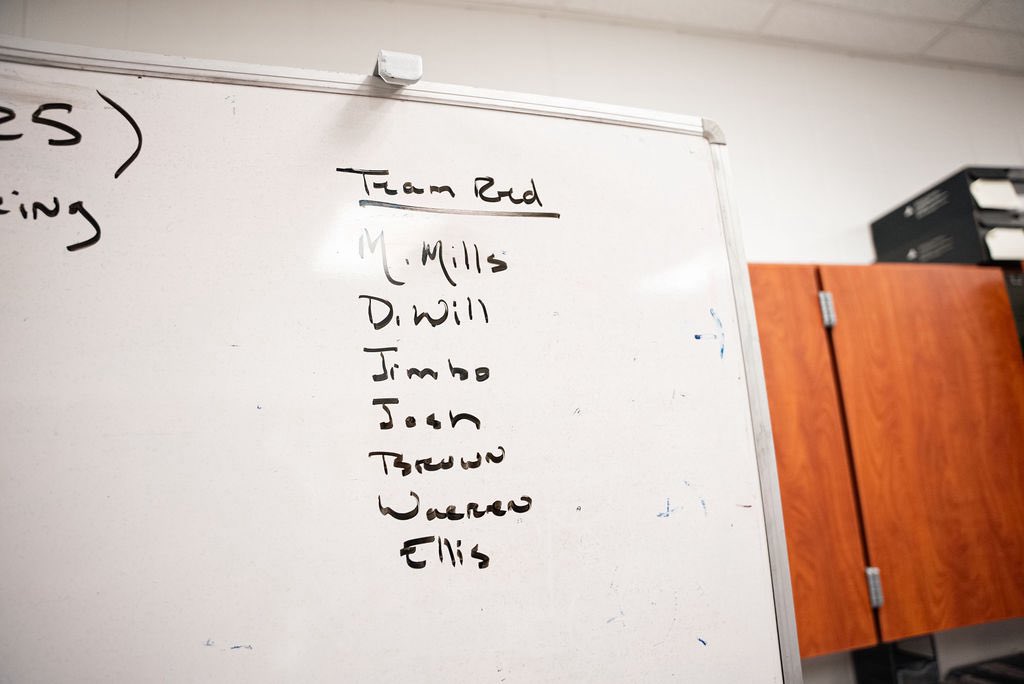 es)
ing
Team Red
M. Mills
D. Will
Jimbo
Josh
Brown
Warren
Ellis